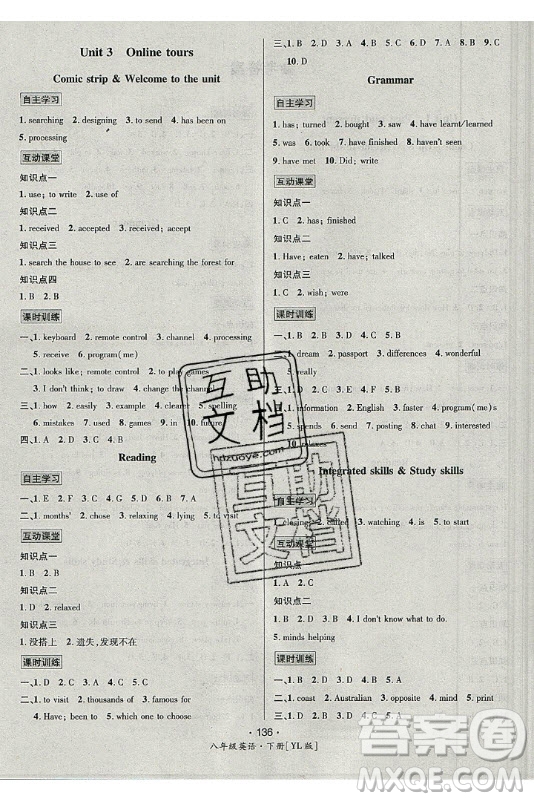 Unit 3 Online tours
Comic strip & Welcome to the unit
自主学习
1. searching 2. designing 3. to show 4. has been on
5. processing
互动课堂
知识点一
1. use; to write 2. use of
知识点二
1. received 2. accepted 3. received; accept
知识点三
1. search the house to see 2. are searching the forest for
知识点四
1. B 2. B
课时训练
一、1. keyboard 2. remote control 3. channel 4. processing
5. receive 6. program(me)
二、1. looks like; remote control 2. to play games
3. I don't think; to draw 4. change the channel
三、1. how 2. easily 3. example 4. clearer 5. spelling
6. mistakes 7. used 8. games 9. in 10. future
四、1. A 2. B 3. D 4. C
Reading
自主学习
一、1. E 2. F 3. A 4. B 5. C 6. D
二、1. months' 2. chose 3. relaxing 4. lying 5. to visit
互动课堂
知识点一
1. B 2. B
知识点二
1. D 2. relaxed
知识点三
1. 没搭上 2. 遗失,发现不在
课时训练
一、1. D 2. C 3. B 4. D 5. A 6. C
二、1. to visit 2. thousands of 3. twentieth 4. has visited
5. famous for 6. Have; travelled 7. missing
8. visitors
三、1. B 2. D 3. A 4. D 5. A 6. A 7. B 8. C 9. C
10. D
Grammar
自主学习
1. has; turned 2. bought 3. saw 4. have learnt/learned
5. was 6. took 7. have finished 8. haven't seen
9. have met 10. Did; write
互动课堂
知识点一
1. C 2. has; finished
知识点二
1. Have; eaten 2. have; talked
知识点三
1. C 2. wish; were
课时训练
一、1. B 2. D 3. C 4. C 5. B
二、1. dream 2. passport 3. differences 4. wonderful
5. really
三、1. information 2. English 3. faster 4. program(me)s
5. tired 6. kinds 7. send 8. course
9. spends 10. relaxes
Integrated skills & Study skills
自主学习
1. closing 2. called 3. watching 4. is 5. to start
互动课堂
知识点一
1. A 2. C
知识点二
1. D 2. D 3. B 4. don't mind
5. minds helping
课时训练
一、1. C 2. A 3. D 4. A 5. D
二、1. coast 2. Australian 3. opposite 4. prepared
· 136 ·
八年级英语·下册[YL版]
互助文档
hdzuoye.com
互助文档
答案圈
MXQE.COM